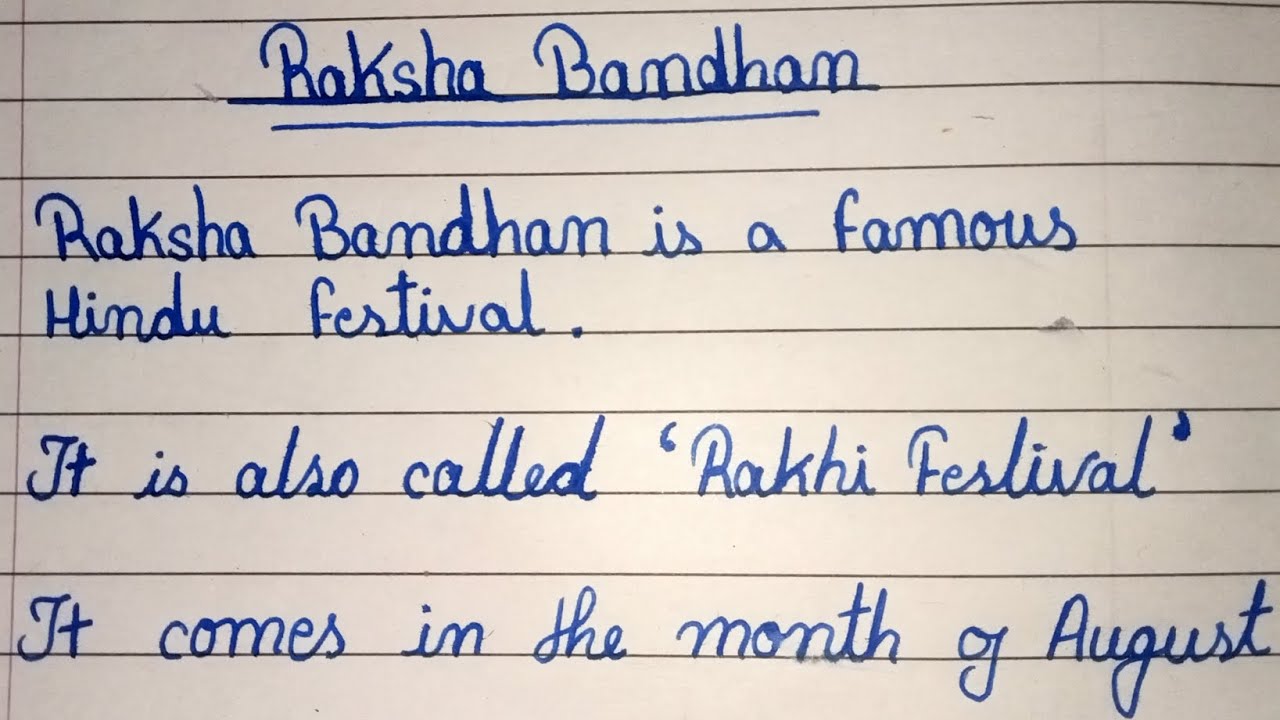 Raksha Bandhan
Raksha Bandhan is a famous
Hindu festival.
It is also called ‘Rakhi Festival’
It comes in the month of August